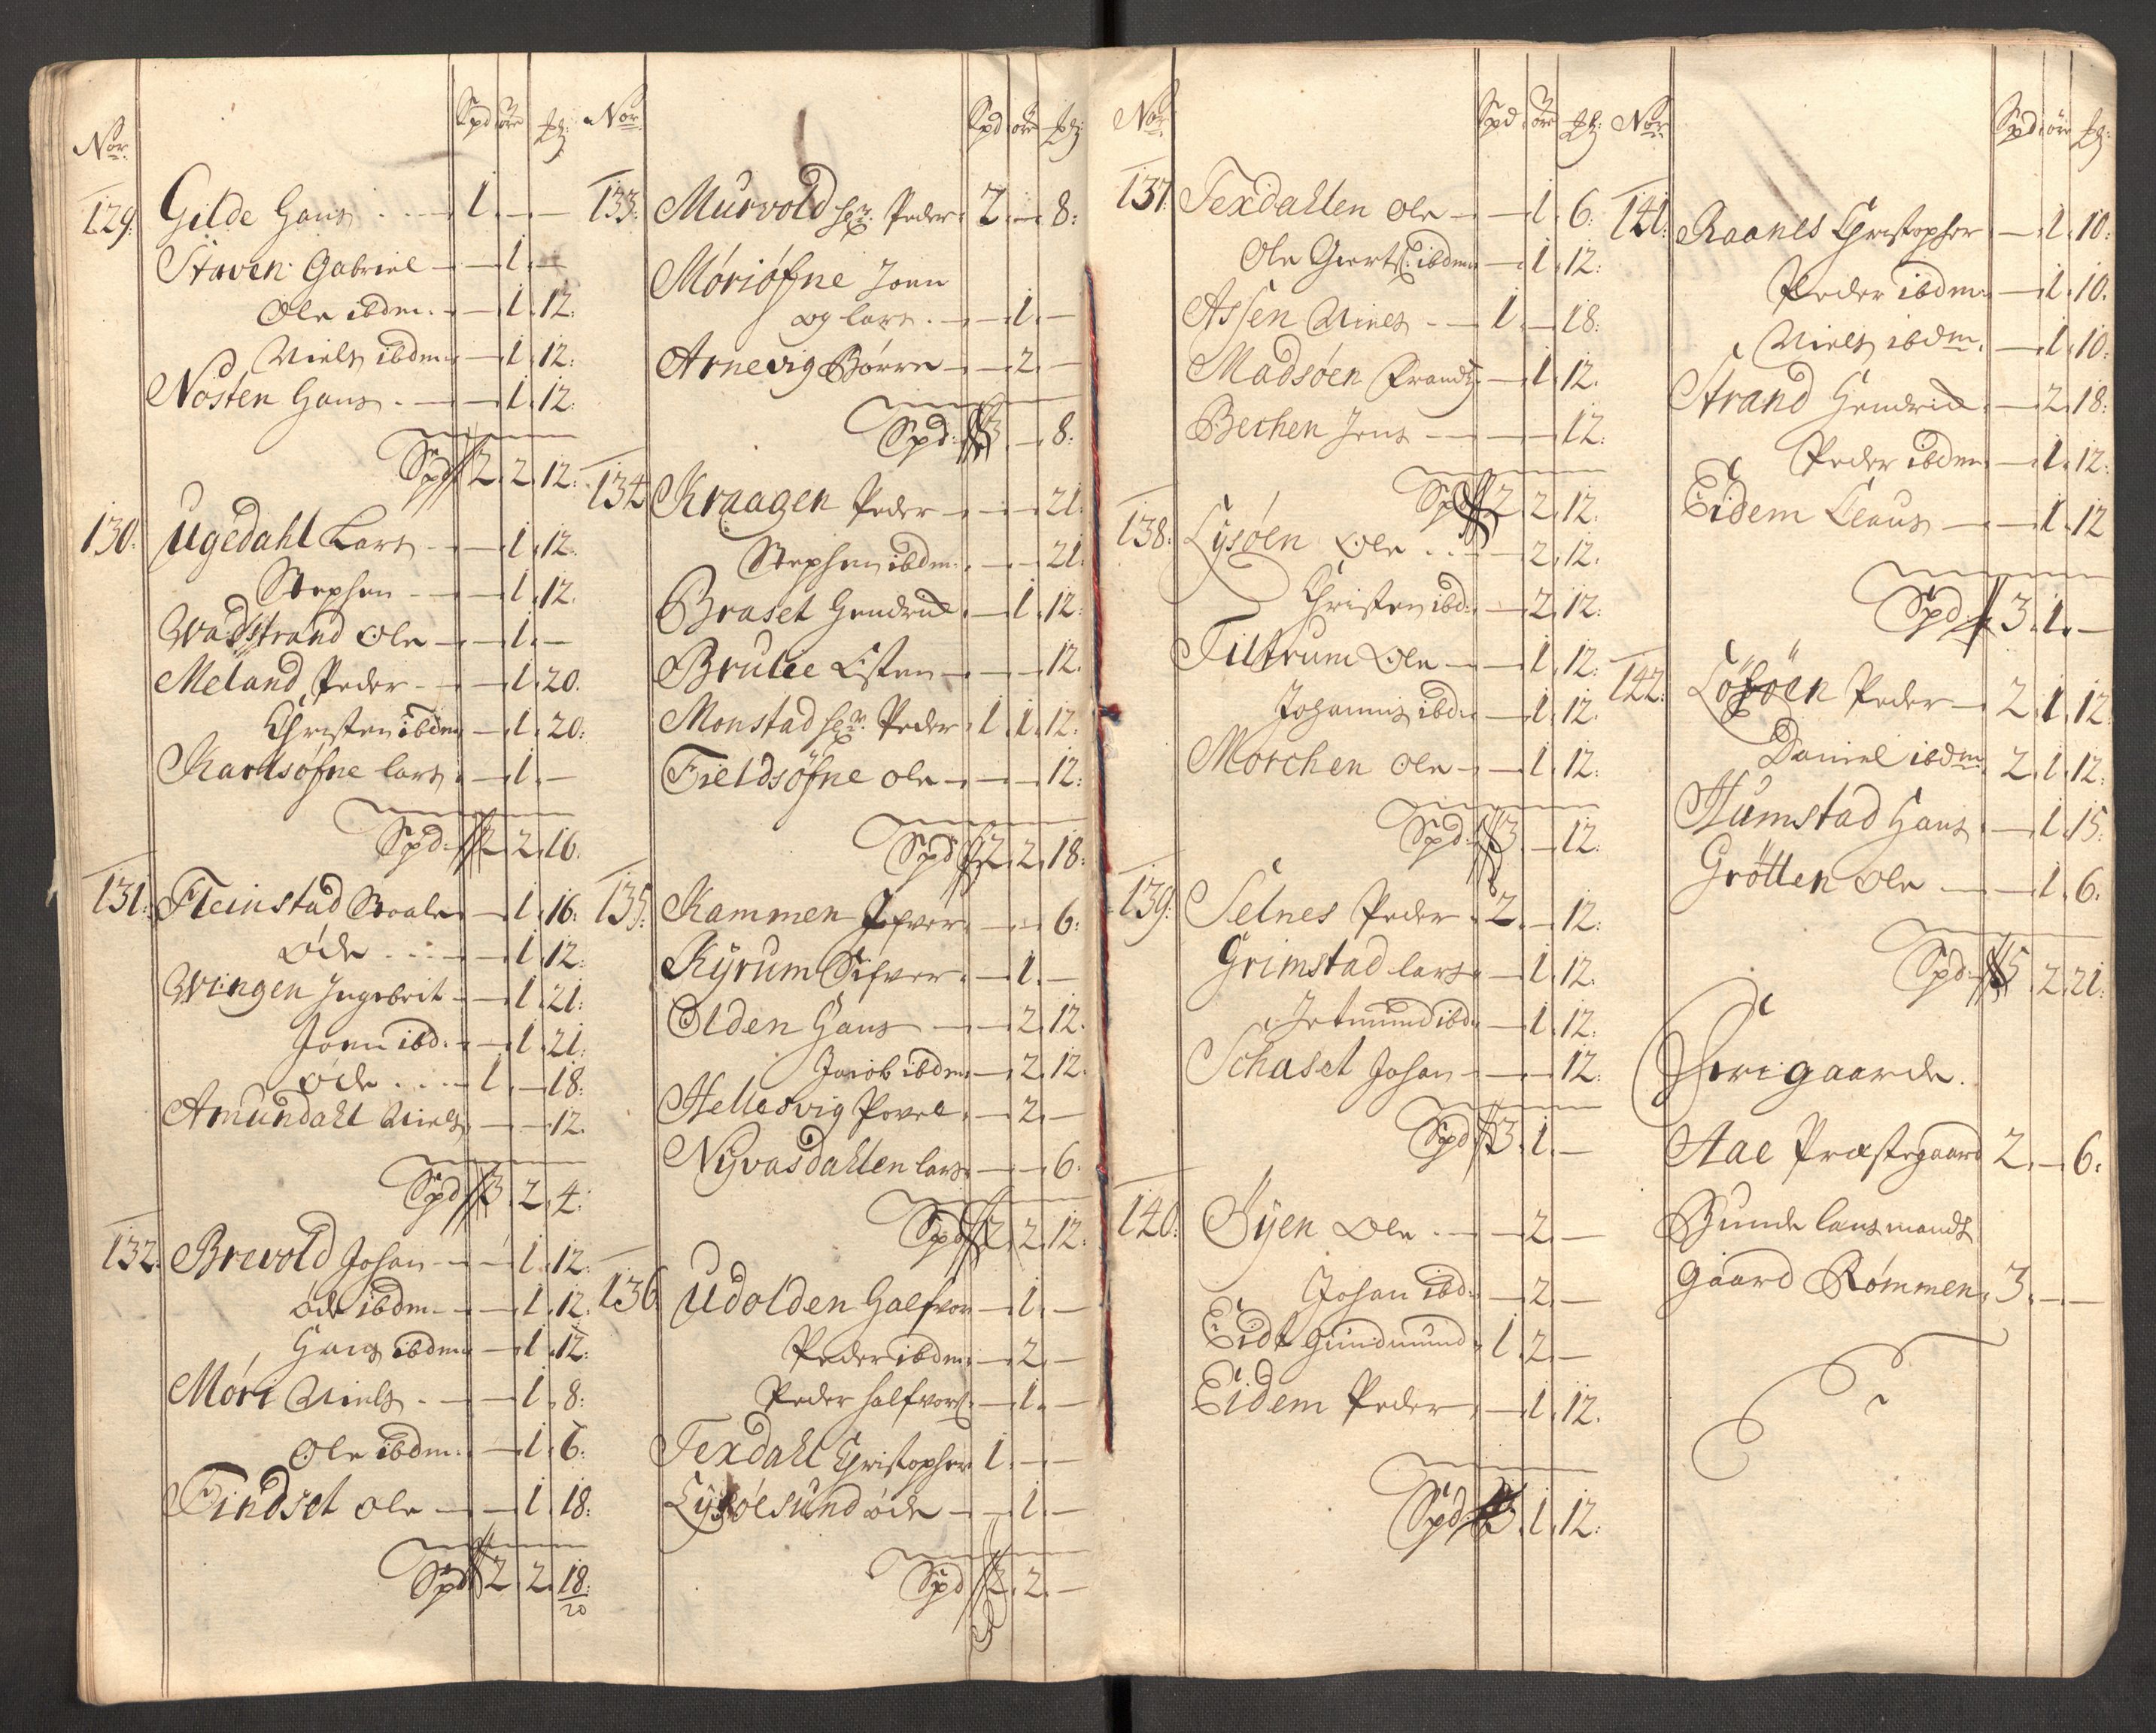 Nor. Spd öre
129. Gilde Hans 1. — —
Staven Gabriel — 1. —
Ole ibdm. — 1. 12.
Niels ibdm. — 1. 12.
Nösten Hans. — 1. 12.
Spd 2. 2. 12.
130. Ugedahl Lars — 1. 12.
Stephen — 1. 12.
Wadstrand Ole — 1. —
Meland Peder — 1. 20.
Christen ibdm — 1. 20.
Karlsöfne lars — 1. —
Spd. 2. 2. 16.
131. Fleinstad Roale — 1. 16.
öde — 1. 12.
Wingen Ingebrit — 1. 21.
Joen ibd. — 1. 21.
öde 1. — 18.
Amundahl Niels — — 12.
Spd 3. 2. 4.
132. Brevold Johan — 1. 12.
öde ibdm — 1. 12.
Hans ibdm — 1. 12.
Möri Niels — 1. 8.
Ole ibdm. — 1. 6.
Findset Ole — 1. 18.
Spd 2. 2. 18.
20
Nor. Spd öre
133. Murvold Peder 2. — 8.
Möriöfne Joen
og lars. — 1. —
Arnevig Börre — 2. —
Spd. 3 — 8.
134. Kraagen Peder — — 21.
Stephen ibdm. — — 21.
Braset Hendrich — 1. 12.
Brulie Esten — — 12.
Monstad Peder 1. 1. 12.
Fieldsöfne Ole — — 12.
Spd 2. 2. 18.
135. Kammen Ifver — — 6.
Kÿrum Sifver — 1. —
Olden Hans — 2. 12.
Jacob ibdm. — 2. 12.
Hellesvig Povel — 2. —
Nÿvasdahlen lars — — 6.
Spd 2. 2. 12.
136 Udolden Halfvor — 1. —
Peder ibdm. — 2. —
Peder halfvors. — 1. —
Texdahl Christopher 1. — —
Lÿsöesund öde — 1. —
Spd 2. 2. —
Nor. Spd öre
137. Texdahlen Ole — 1. 6.
Ole Giertz. ibdm — 1. 12.
Assen Niels 1. — 18.
Madsöen — 1. 12.
Berhen Jens — — 12.
Spd 2. 2. 12.
138. Lÿsöen Ole — 2. 12.
Christen ibd. — 2. 12.
Tiltrum Ole — 1. 12.
Johannis ibd. — 1. 12.
Morchen Ole — 1. 12.
Spd. 3. — 12.
139. Selnes Peder 2. — 12.
Grimstad lars — 1. 12.
Jetmund ibd. — 1. 12.
Schaset Johan — — 12.
Spd 3. 1. —
140. Öÿen Ole — 2. —
Johan ibd. — 2. —
Eidt Gundmund 1. 2. —
Eidem Peder — 1. 12.
Spd. 3. 1. 12.
Nor. Spd. öre
141. Raanes Christopher — 1. 10.
Peder ibdm. — 1. 10.
Niels ibdm. — 1. 10.
Strand Hendrich — 2. 18.
Peder ibdm — 1. 12.
Eidem Claus — 1. 12
Spd. 3. 1. —
142. Löfsöen Peder 2. 1. 12.
Daniel ibdm 2. 1. 12.
Humstad Hans — 1. 15.
Grötten Ole — 1. 6.
Spd. 5. 2. 21.
Frigaarde.
Aae Præstegaard 2. — 6.
Bunde lansmands
gaard Römmen. 3. — —